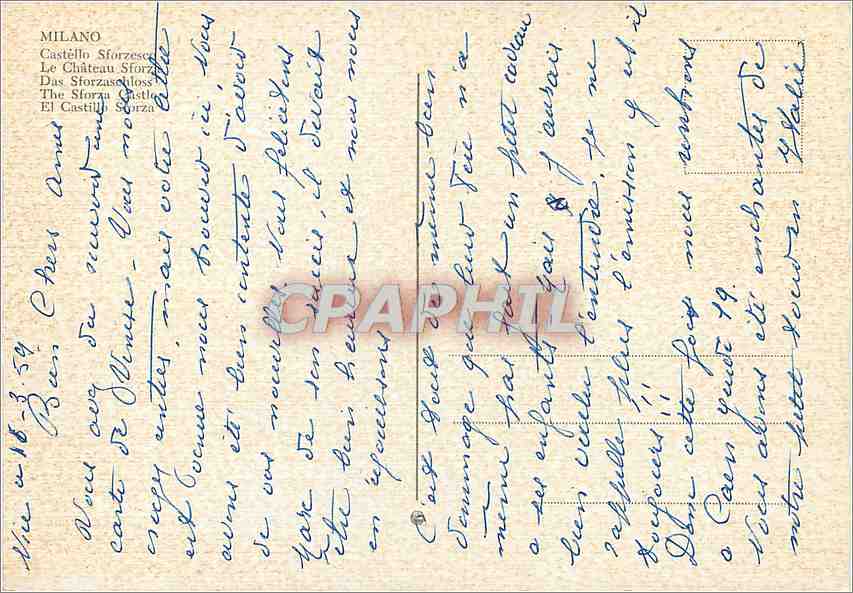 MILANO
Castello Sforzesco
Le Château Sforza
Das Sforzaschloss
The Sforza Castle
El Castillo Sforza
Nice 18-3.59
Bien Chers Amis
Vous avez du recevoir une
carte de Venise - Vous nous
croyez rentrés, mais votre lettre
est venue nous trouver ici, nous
avons été bien contente d'avoir
de vos nouvelles. Nous félicitons
Marc de son succès, il devait
être bien heureux et nous nous
en réjouissons
C'est tout de même bien
dommage que leur Père n'a
même pas fait un petit cadeau
a ses enfants - j'aurais
bien voulu l'entendre, je ne
rappelle plus l'émission y est il
toujours !!
Donc cette fois nous rentrons
a Caen jeudi 19.
Nous avons été enchantés de
notre petit tour en Italie
CRAPHIL